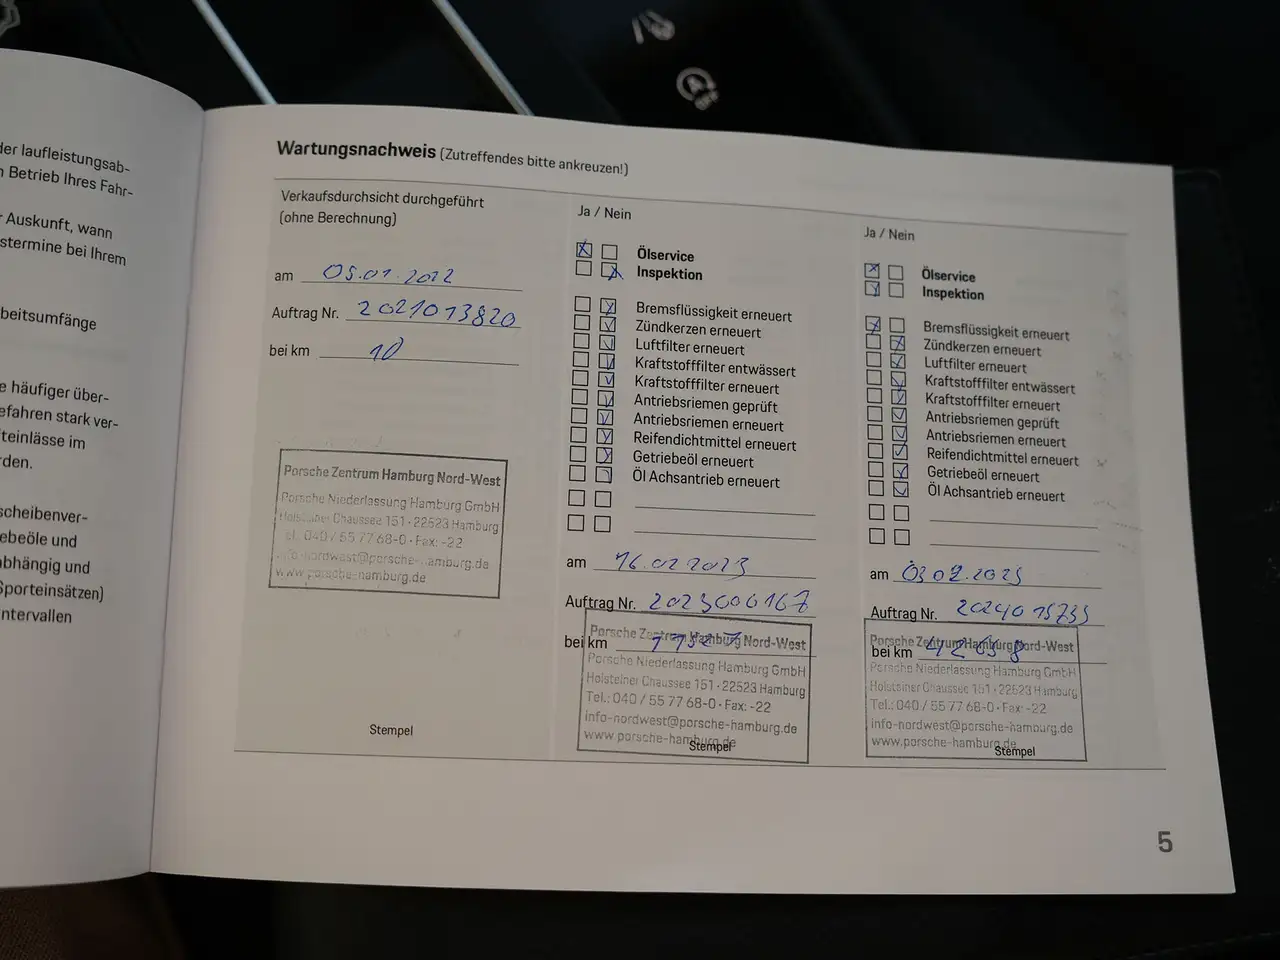 der laufleistungsab-
n Betrieb Ihres Fahr-
r Auskunft, wann
stermine bei Ihrem
beitsumfänge
e häufiger über-
efahren stark ver-
fteinlässe im
rden.
scheibenver-
ebeöle und
abhängig und
Sporteinsätzen)
ntervallen
Wartungsnachweis (Zutreffendes bitte ankreuzen!)
Verkaufsdurchsicht durchgeführt
(ohne Berechnung)
am 05.01.2022
Auftrag Nr. 2021013820
bei km 10
Porsche Zentrum Hamburg Nord-West
Porsche Niederlassung Hamburg GmbH
Holsteiner Chaussee 151 · 22523 Hamburg
Tel.: 040 / 55 77 68-0 · Fax: -22
info-nordwest@porsche-hamburg.de
www.porsche-hamburg.de
Stempel
Ja / Nein
Ölservice
Inspektion
Bremsflüssigkeit erneuert
Zündkerzen erneuert
Luftfilter erneuert
Kraftstofffilter entwässert
Kraftstofffilter erneuert
Antriebsriemen geprüft
Antriebsriemen erneuert
Reifendichtmittel erneuert
Getriebeöl erneuert
Öl Achsantrieb erneuert
am 16.02.2023
Auftrag Nr. 2023000167
bei km
Porsche Zentrum Hamburg Nord-West
Porsche Niederlassung Hamburg GmbH
Holsteiner Chaussee 151 · 22523 Hamburg
Tel.: 040 / 55 77 68-0 · Fax: -22
info-nordwest@porsche-hamburg.de
www.porsche-hamburg.de
Stempel
Ja / Nein
Ölservice
Inspektion
Bremsflüssigkeit erneuert
Zündkerzen erneuert
Luftfilter erneuert
Kraftstofffilter entwässert
Kraftstofffilter erneuert
Antriebsriemen geprüft
Antriebsriemen erneuert
Reifendichtmittel erneuert
Getriebeöl erneuert
Öl Achsantrieb erneuert
am
Auftrag Nr.
bei km
Porsche Zentrum Hamburg Nord-West
Porsche Niederlassung Hamburg GmbH
Holsteiner Chaussee 151 · 22523 Hamburg
Tel.: 040 / 55 77 68-0 · Fax: -22
info-nordwest@porsche-hamburg.de
www.porsche-hamburg.de
Stempel
5